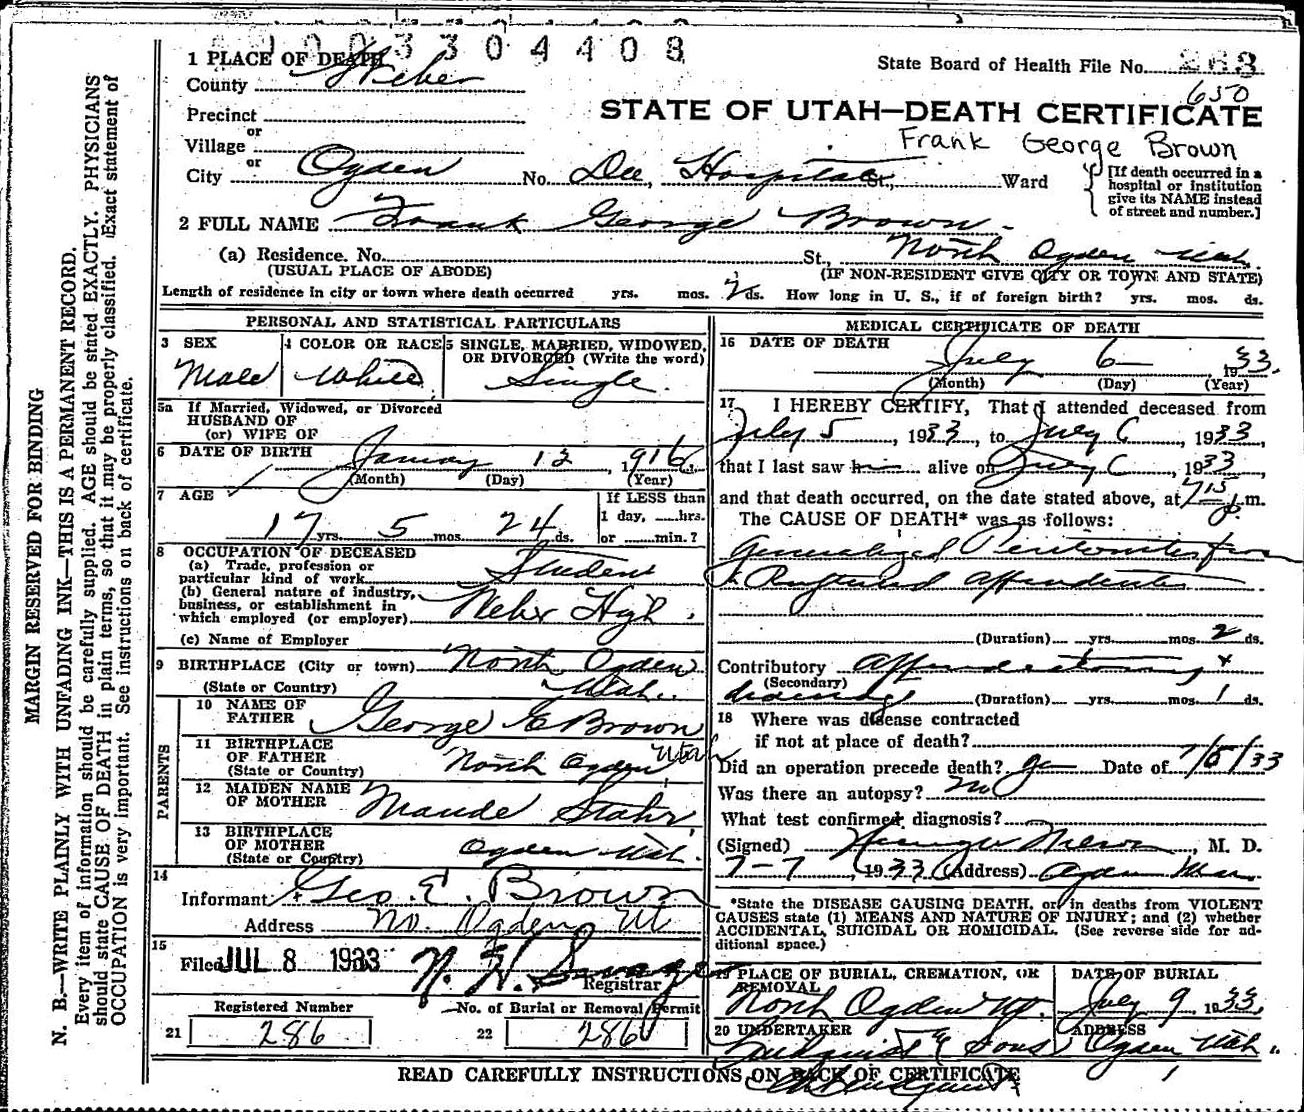 3304408
1 PLACE OF DEATH
County Weber
State Board of Health File No. 263
650
Precinct
or
STATE OF UTAH—DEATH CERTIFICATE
Frank George Brown
Village
or
City Ogden No. Dee, Hospital St., Ward
[If death occurred in a hospital or institution give its NAME instead of street and number.]
2 FULL NAME Frank George Brown
(a) Residence. No. St., North Ogden Utah.
(USUAL PLACE OF ABODE) (IF NON-RESIDENT GIVE CITY OR TOWN AND STATE)
Length of residence in city or town where death occurred yrs. mos. 2 ds. How long in U. S., if of foreign birth? yrs. mos. ds.
PERSONAL AND STATISTICAL PARTICULARS
3 SEX 4 COLOR OR RACE 5 SINGLE, MARRIED, WIDOWED, OR DIVORCED (Write the word)
Male White Single.
5a If Married, Widowed, or Divorced
HUSBAND OF
(or) WIFE OF
6 DATE OF BIRTH January 12, 1916
(Month) (Day) (Year)
7 AGE If LESS than
1 day, hrs.
17 yrs. 5 mos. 24 ds. or min.?
8 OCCUPATION OF DECEASED
(a) Trade, profession or
particular kind of work Student
(b) General nature of industry,
business, or establishment in
which employed (or employer) Weber High
(c) Name of Employer
9 BIRTHPLACE (City or town) North Ogden
(State or Country) Utah.
PARENTS
10 NAME OF FATHER George E Brown
11 BIRTHPLACE OF FATHER
(State or Country) North Ogden, Utah
12 MAIDEN NAME OF MOTHER Maude Stahr
13 BIRTHPLACE OF MOTHER
(State or Country) Ogden Utah.
14
Informant Geo. E. Brown
Address No. Ogden Ut
15
Filed JUL 8 1933 N. H. Savage
Registrar
Registered Number No. of Burial or Removal Permit
21 286 22 286
MEDICAL CERTIFICATE OF DEATH
16 DATE OF DEATH
July 6 1933.
(Month) (Day) (Year)
17 I HEREBY CERTIFY, That I attended deceased from
July 5, 1933, to July 6, 1933,
that I last saw him alive on July 6, 1933
and that death occurred, on the date stated above, at 7 15 p.m.
The CAUSE OF DEATH* was as follows:
Generalized Peritonitis from
Ruptured Appendicitis
(Duration) yrs. mos. 2 ds.
Contributory Appendectomy +
(Secondary)
drainage (Duration) yrs. mos. 1 ds.
18 Where was disease contracted
if not at place of death?
Did an operation precede death? yes Date of 7/5/33
Was there an autopsy? no
What test confirmed diagnosis?
(Signed) Nelson, M. D.
7-7, 1933 (Address) Ogden Utah
*State the DISEASE CAUSING DEATH, or in deaths from VIOLENT
CAUSES state (1) MEANS AND NATURE OF INJURY; and (2) whether
ACCIDENTAL, SUICIDAL OR HOMICIDAL. (See reverse side for ad-
ditional space.)
19 PLACE OF BURIAL, CREMATION, OR REMOVAL DATE OF BURIAL
North Ogden Ut. July 9 1933.
20 UNDERTAKER ADDRESS
Lindquist & Sons, Ogden Utah.
READ CAREFULLY INSTRUCTIONS ON BACK OF CERTIFICATE
MARGIN RESERVED FOR BINDING
N. B.—WRITE PLAINLY WITH UNFADING INK—THIS IS A PERMANENT RECORD.
Every item of information should be carefully supplied. AGE should be stated EXACTLY. PHYSICIANS
should state CAUSE OF DEATH in plain terms, so that it may be properly classified. Exact statement of
OCCUPATION is very important. See instructions on back of certificate.